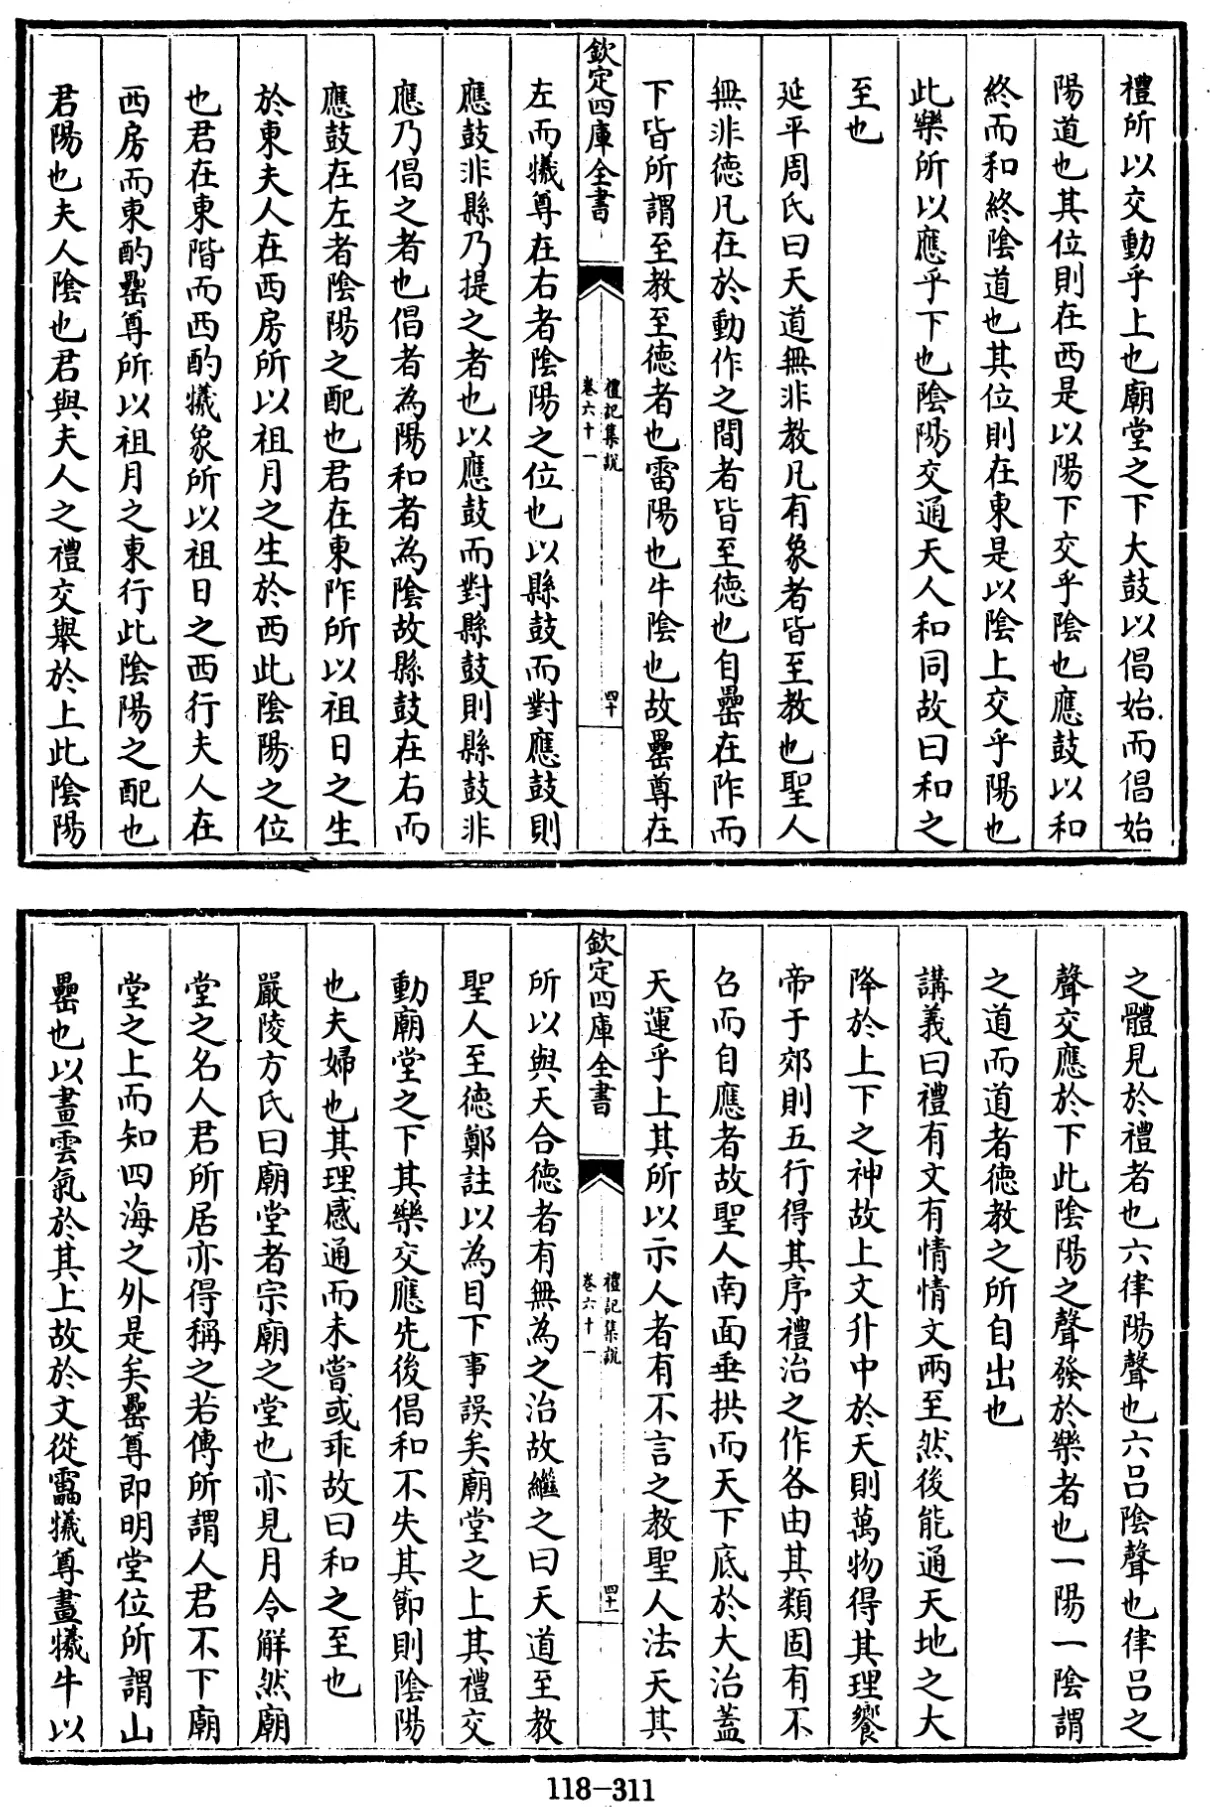 禮所以交動乎上也廟堂之下大鼓以倡始而倡始
陽道也其位則在西是以陽下交乎陰也應鼓以和
終而和終陰道也其位則在東是以陰上交乎陽也
此樂所以應乎下也陰陽交通天人和同故曰和之
至也
延平周氏曰天道無非教凡有象者皆至教也聖人
無非德凡在於動作之間者皆至德也自罍在阼而
下皆所謂至教至德者也雷陽也牛陰也故罍尊在
欽定四庫全書
禮記集說
卷六十一
四十
左而犧尊在右者陰陽之位也以縣鼓而對應鼓則
應鼓非縣乃提之者也以應鼓而對縣鼓則縣鼓非
應乃倡之者也倡者為陽和者為陰故縣鼓在右而
應鼓在左者陰陽之配也君在東阼所以祖日之生
於東夫人在西房所以祖月之生於西此陰陽之位
也君在東階而西酌犧象所以祖日之西行夫人在
西房而東酌罍尊所以祖月之東行此陰陽之配也
君陽也夫人陰也君與夫人之禮交舉於上此陰陽
之體見於禮者也六律陽聲也六呂陰聲也律呂之
聲交應於下此陰陽之聲發於樂者也一陽一陰謂
之道而道者德教之所自出也
講義曰禮有文有情情文兩至然後能通天地之大
降於上下之神故上文升中於天則萬物得其理饗
帝于郊則五行得其序禮治之作各由其類固有不
召而自應者故聖人南面垂拱而天下底於大治蓋
天運乎上其所以示人者有不言之教聖人法天其
欽定四庫全書
禮記集說
卷六十一
四十一
所以與天合德者有無為之治故繼之曰天道至教
聖人至德鄭註以為目下事誤矣廟堂之上其禮交
動廟堂之下其樂交應先後倡和不失其節則陰陽
也夫婦也其理感通而未嘗或乖故曰和之至也
嚴陵方氏曰廟堂者宗廟之堂也亦見月令解然廟
堂之名人君所居亦得稱之若傳所謂人君不下廟
堂之上而知四海之外是矣罍尊即明堂位所謂山
罍也以畫雲氣於其上故於文從靁犧尊畫犧牛以
118-311